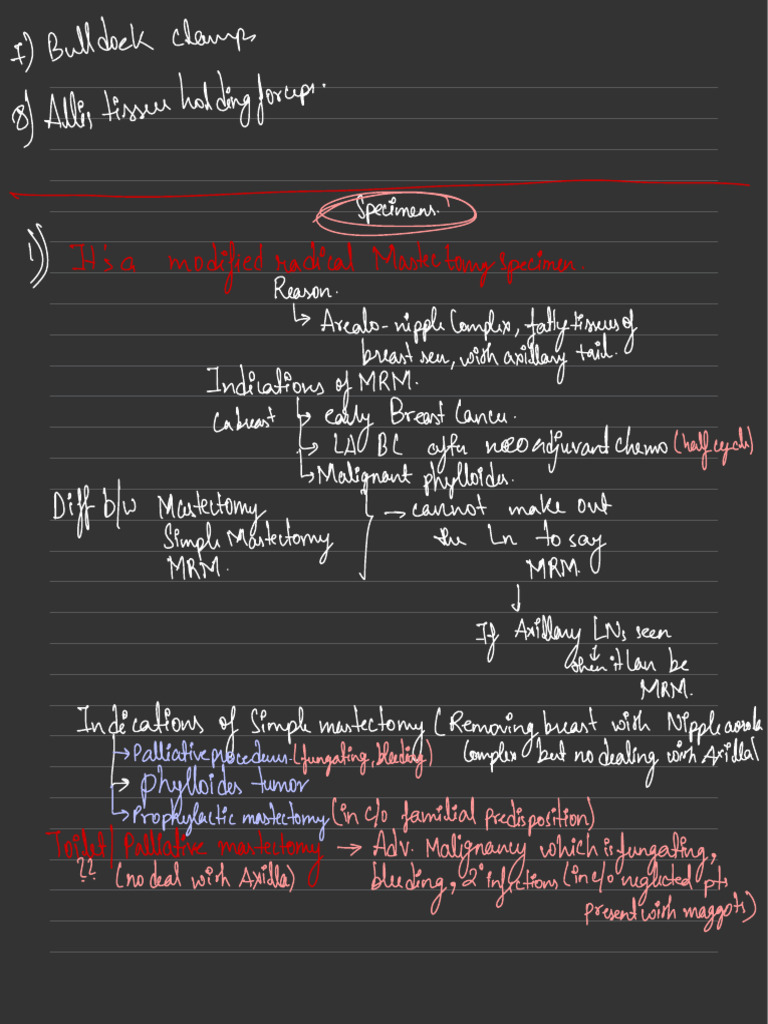 7) Bulldock clamps
8) Allis tissue holding forceps.
Specimens.
1) It's a modified radical Mastectomy specimen.
Reason.
↳ Arealo-nipple Complex, fatty tissues of
breast seen, with axillary tail.
Indications of MRM.
Ca breast ↳ early Breast Cancer.
↳ LA BC after neoadjuvant chemo (half cycle)
↳ Malignant phylloides.
Diff b/w Mastectomy → cannot make out
Simple Mastectomy the Ln to say
MRM. MRM.
↓
If Axillary LNs seen
↓
then it can be
MRM.
Indications of Simple mastectomy (Removing breast with Nipple areola
Complex but no dealing with Axilla)
→ Palliative procedures (fungating, bleeding)
→ phylloides tumor
↳ Prophylactic mastectomy (in c/o familial predisposition)
Toilet / Palliative mastectomy → Adv. Malignancy which is fungating,
?? (no deal with Axilla) bleeding, 2° infections (in c/o neglected pts
present with maggots)